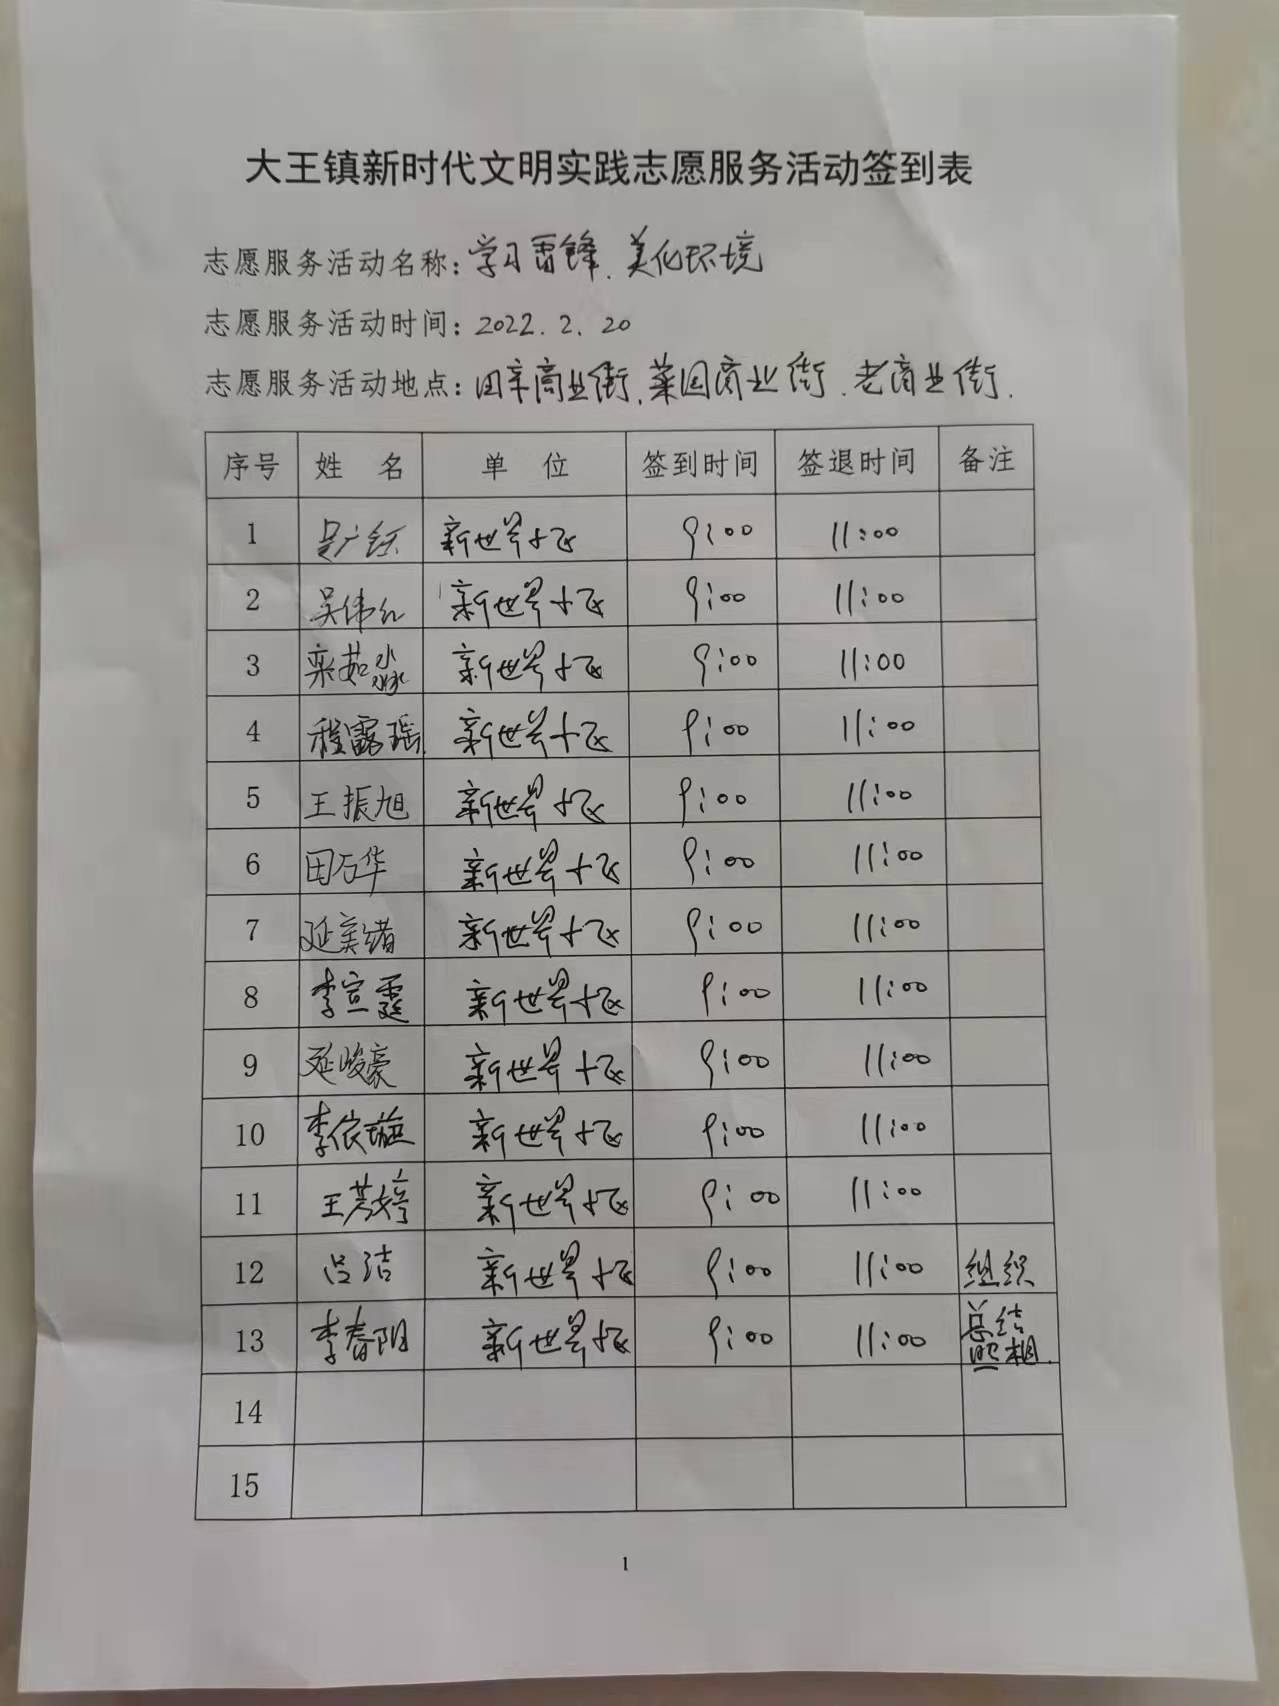 大王镇新时代文明实践志愿服务活动签到表
志愿服务活动名称：学习雷锋、美化环境
志愿服务活动时间：2022.2.20
志愿服务活动地点：田辛商业街、菜园商业街、老商业街.
序号 姓 名 单 位 签到时间 签退时间 备注
1 新世界小区 9:00 11:00
2 吴伟红 新世界小区 9:00 11:00
3 栾茹淼 新世界小区 9:00 11:00
4 程露瑶 新世界小区 9:00 11:00
5 王振旭 新世界小区 9:00 11:00
6 田万华 新世界小区 9:00 11:00
7 延美绪 新世界小区 9:00 11:00
8 李宣霆 新世界小区 9:00 11:00
9 延峻豪 新世界小区 9:00 11:00
10 李依璇 新世界小区 9:00 11:00
11 王艺婷 新世界小区 9:00 11:00
12 吕洁 新世界小区 9:00 11:00 组织
13 李春阳 新世界小区 9:00 11:00 总结
照相.
14
15
1